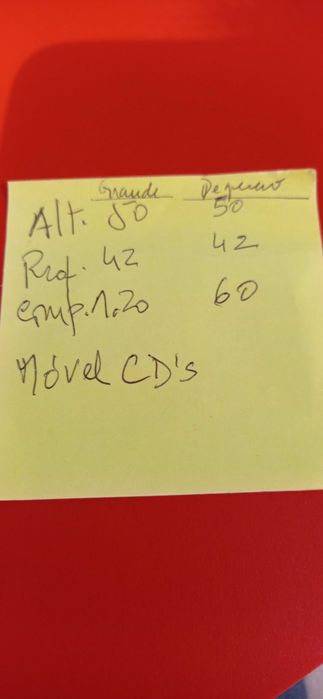 Grande Pequeno
Alt. 50 50
Prof. 42 42
Comp. 1.20 60
Móvel CD's